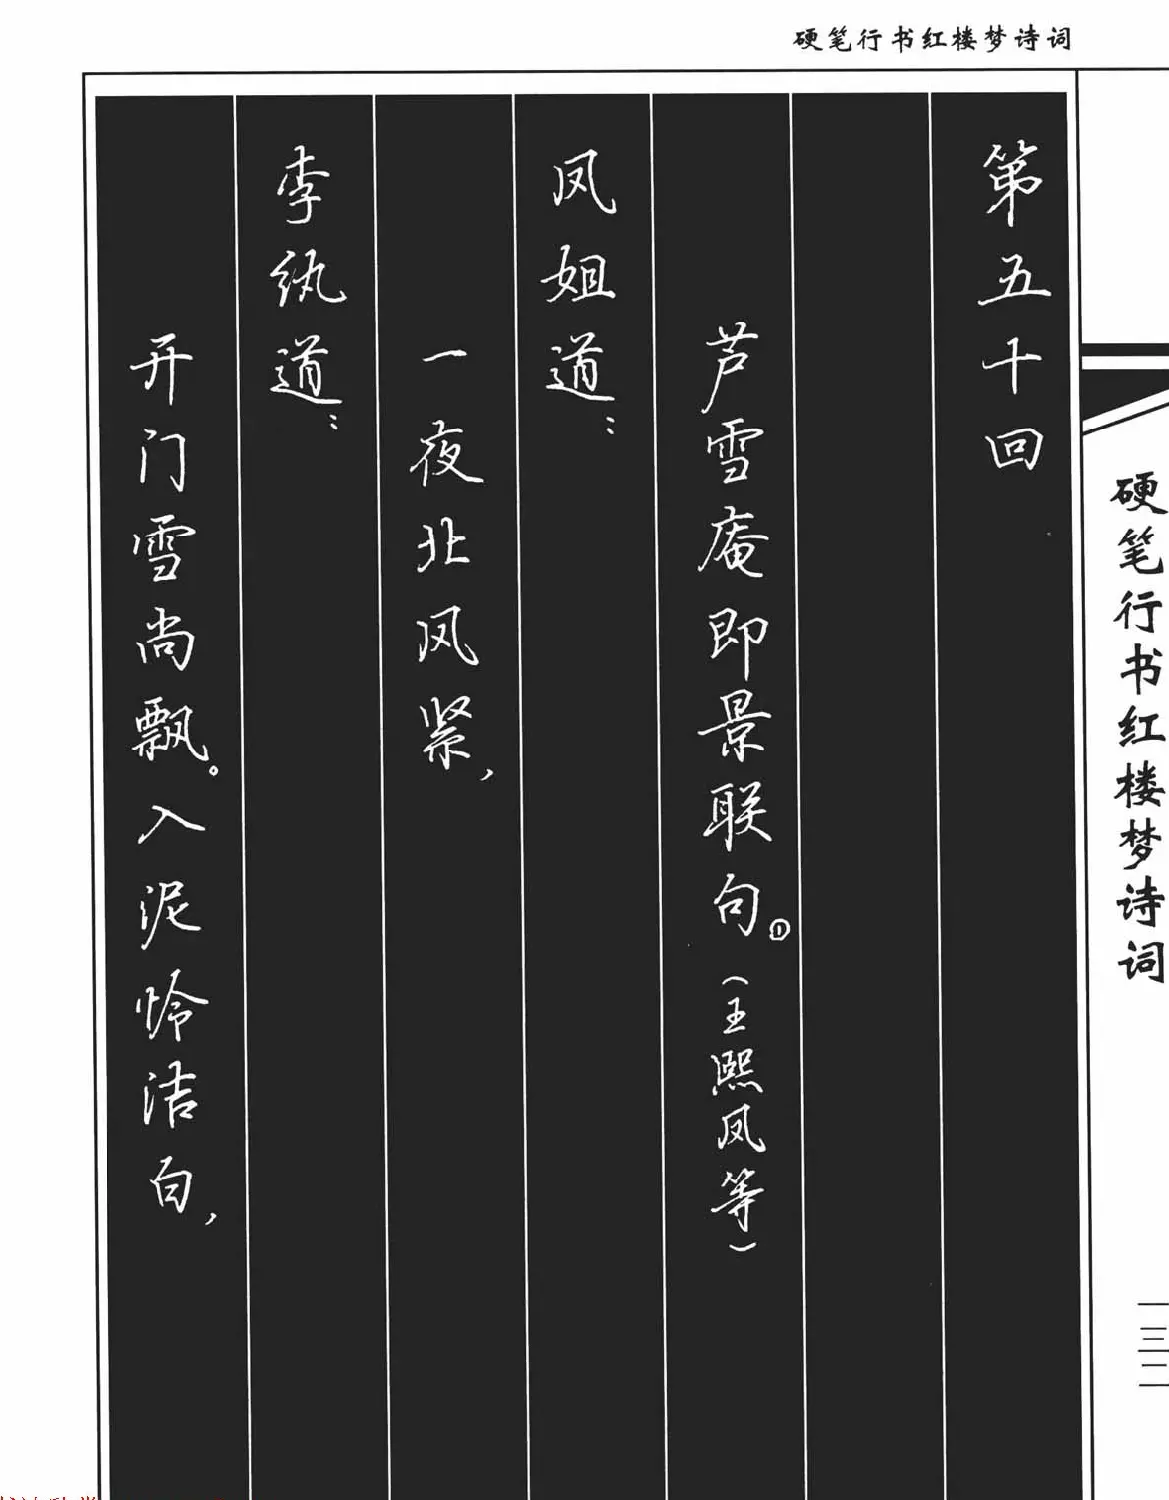 硬笔行书红楼梦诗词
第五十回
芦雪庵即景联句。①（王熙凤等）
凤姐道：
一夜北风紧，
李纨道：
开门雪尚飘。入泥怜洁白，
硬笔行书红楼梦诗词